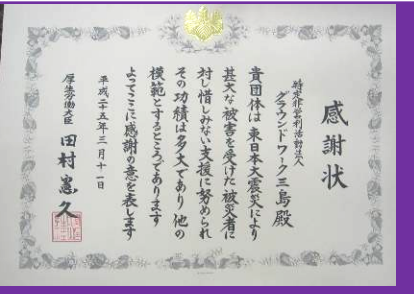 感謝状
特定非営利活動法人
グラウンドワーク三島殿
貴団体は東日本大震災により
甚大な被害を受けた被災者に
対し惜しみない支援に努められ
その功績は多大であり他の
模範とするところであります
よってここに感謝の意を表します
平成二十五年三月十一日
厚生労働大臣 田村憲久